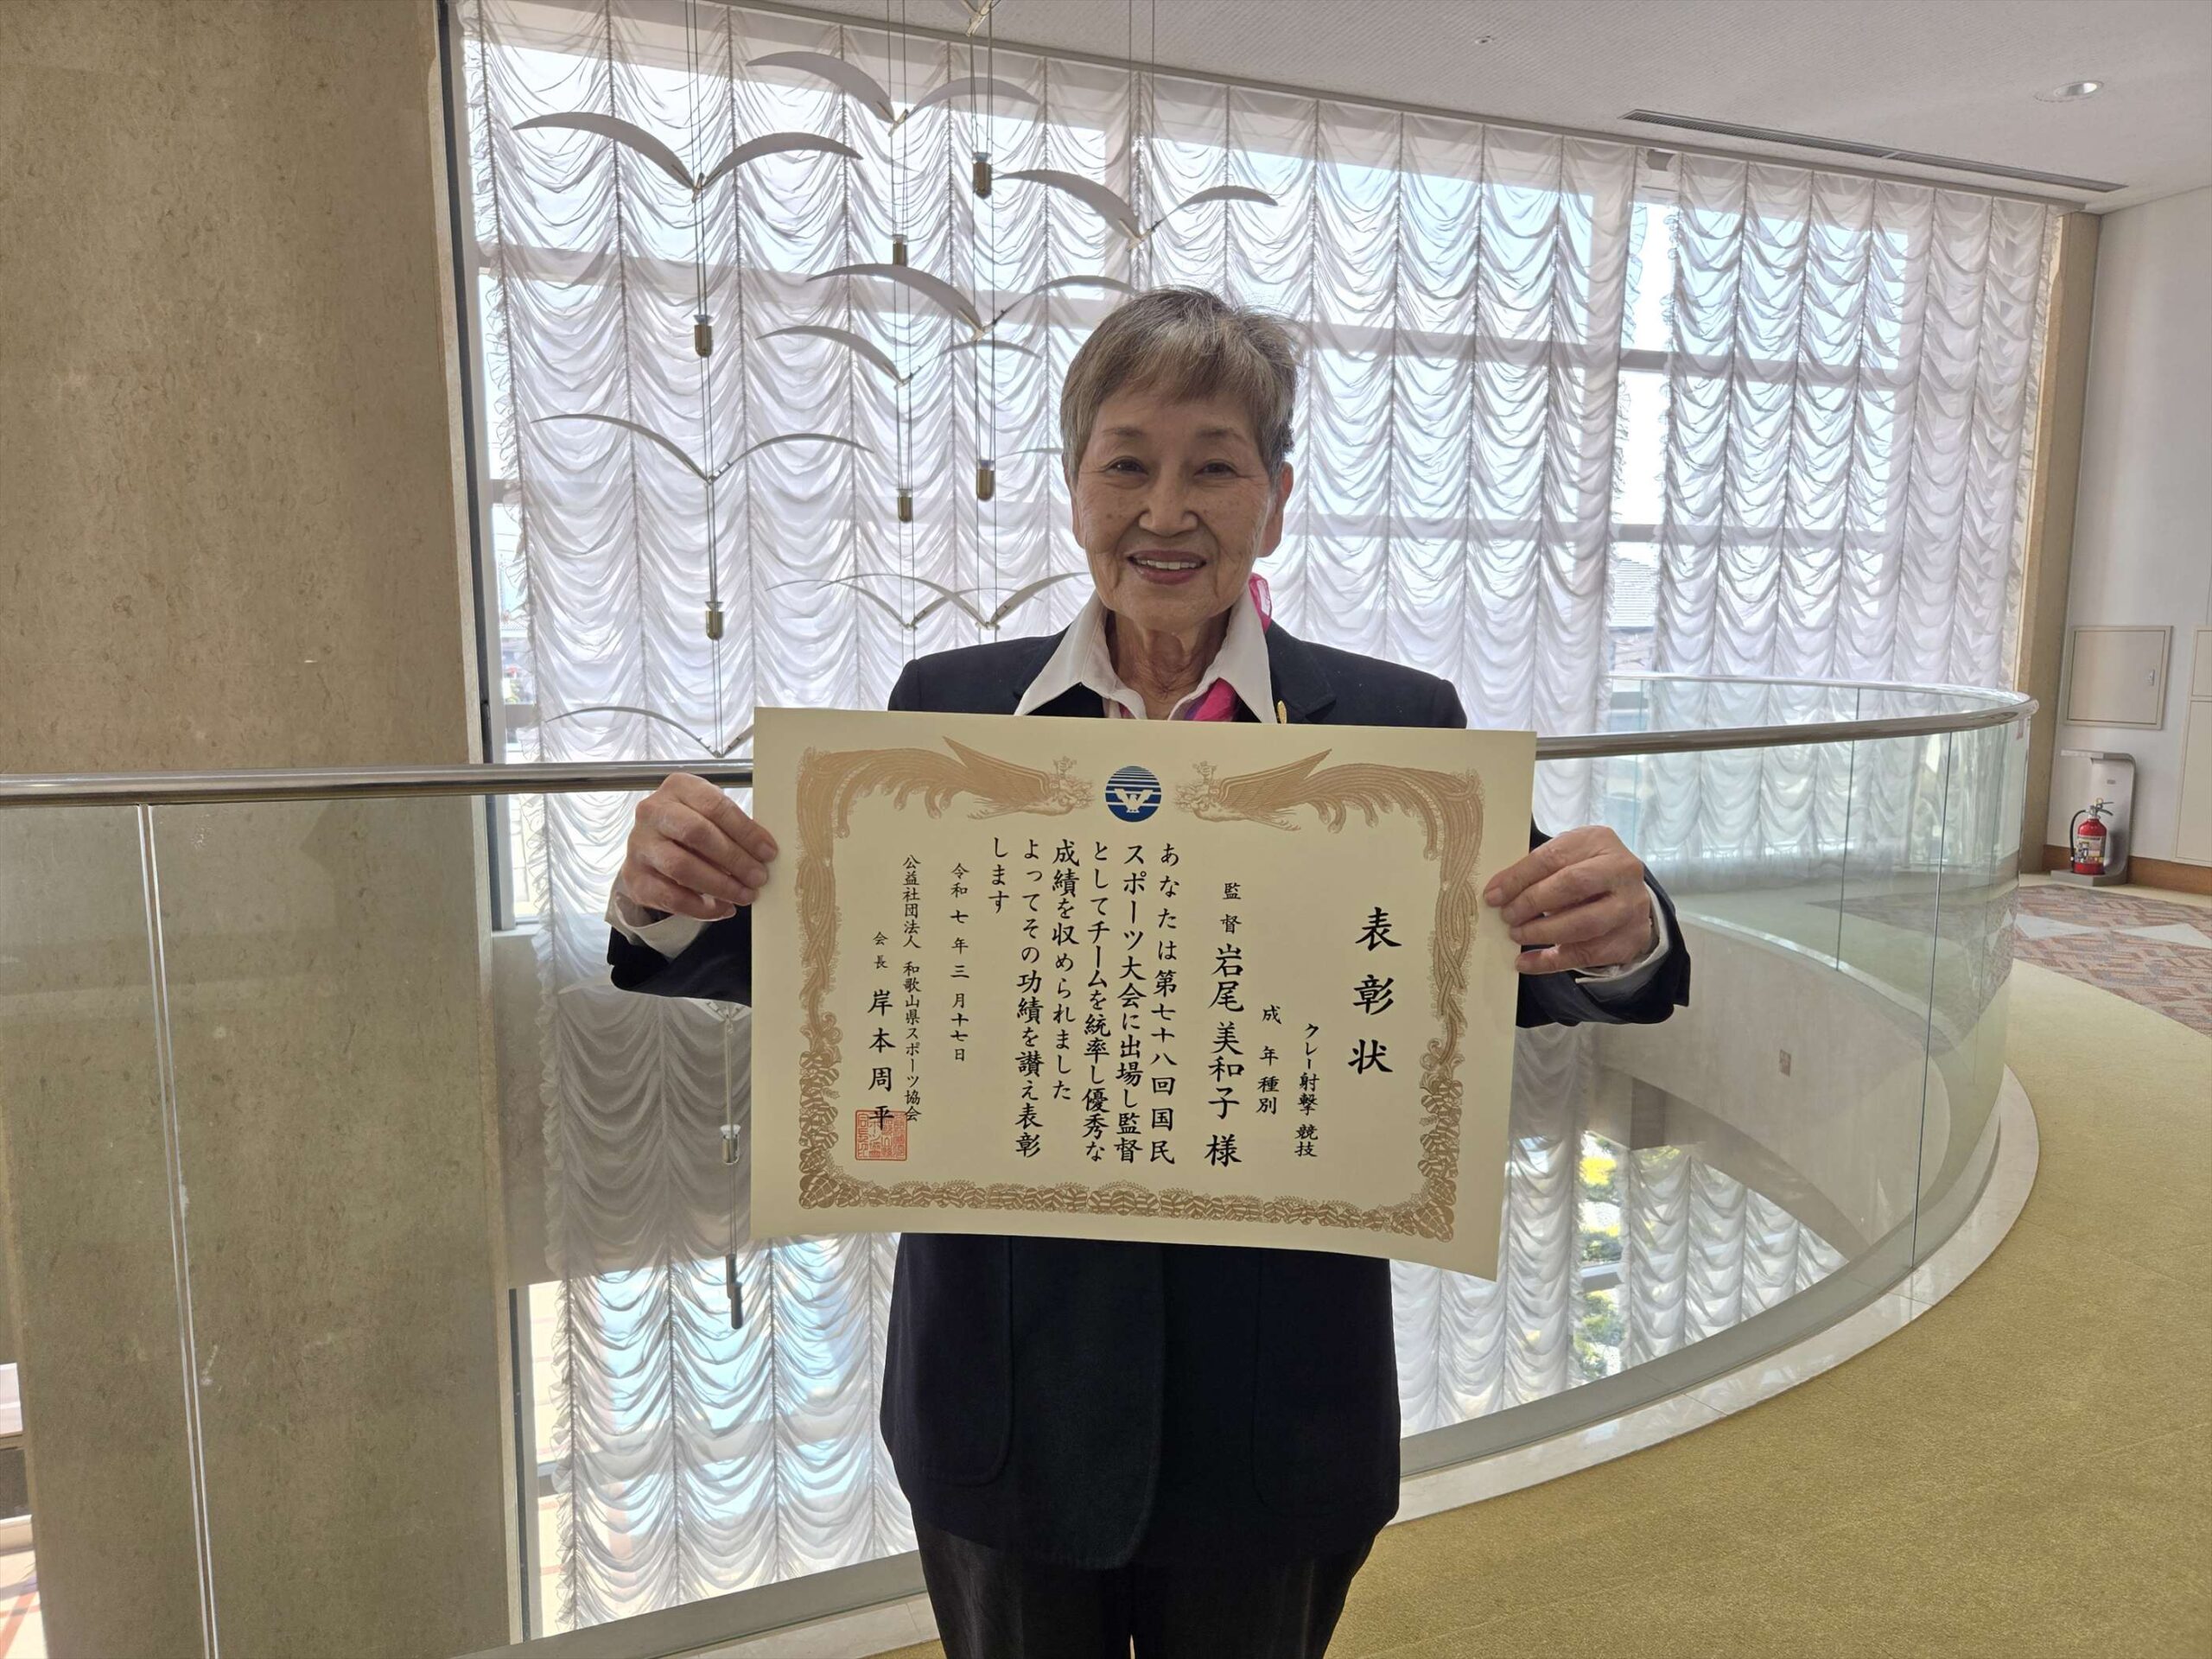 表彰状
クレー射撃競技
成年種別
監督 岩尾美和子様
あなたは第七十八回国民
スポーツ大会に出場し監督
としてチームを統率し優秀な
成績を収められました
よってその功績を讃え表彰
します
令和七年三月十七日
公益社団法人 和歌山県スポーツ協会
会長 岸本周平